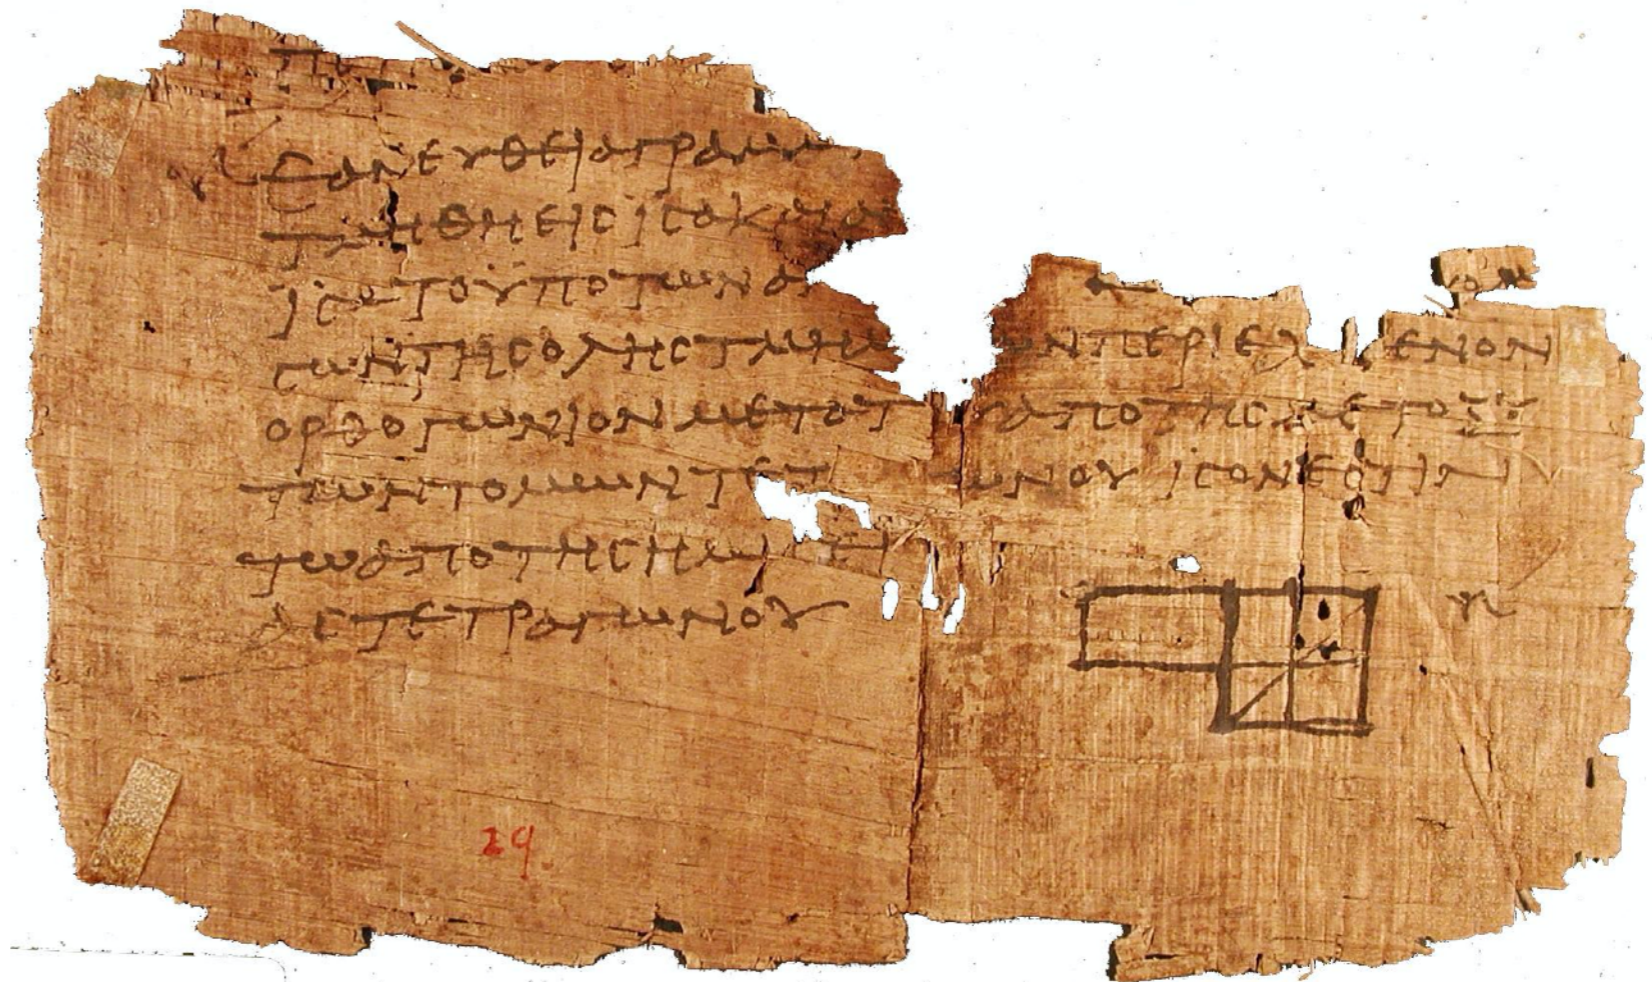 ΕΑΝΕΥΘΕΙΑΓΡΑΜΜ
ΤΜΗΘΗΕΙΣΙΣΑΚΑΙΑΝ
ΙΣΑΤΟΥΠΟΤΩΝΑΝ
ΣΩΝΤΗΣΟΛΗΣΤΜΗΜ ΩΝΠΕΡΙΕΧ ΜΕΝΟΝ
ΟΡΘΟΓΩΝΙΟΝΜΕΤΟΤ ΥΑΠΟΤΗΣΜΕΤΟΞΥ
ΤΩΝΤΟΜΩΝΤΕΤ ΩΝΟΥΙΣΟΝΕΣΤΙΝ
ΤΩΑΠΟΤΗΣΗΜΙΣΕΙ
ΑΣΤΕΤΡΑΓΩΝΟΥ
29.